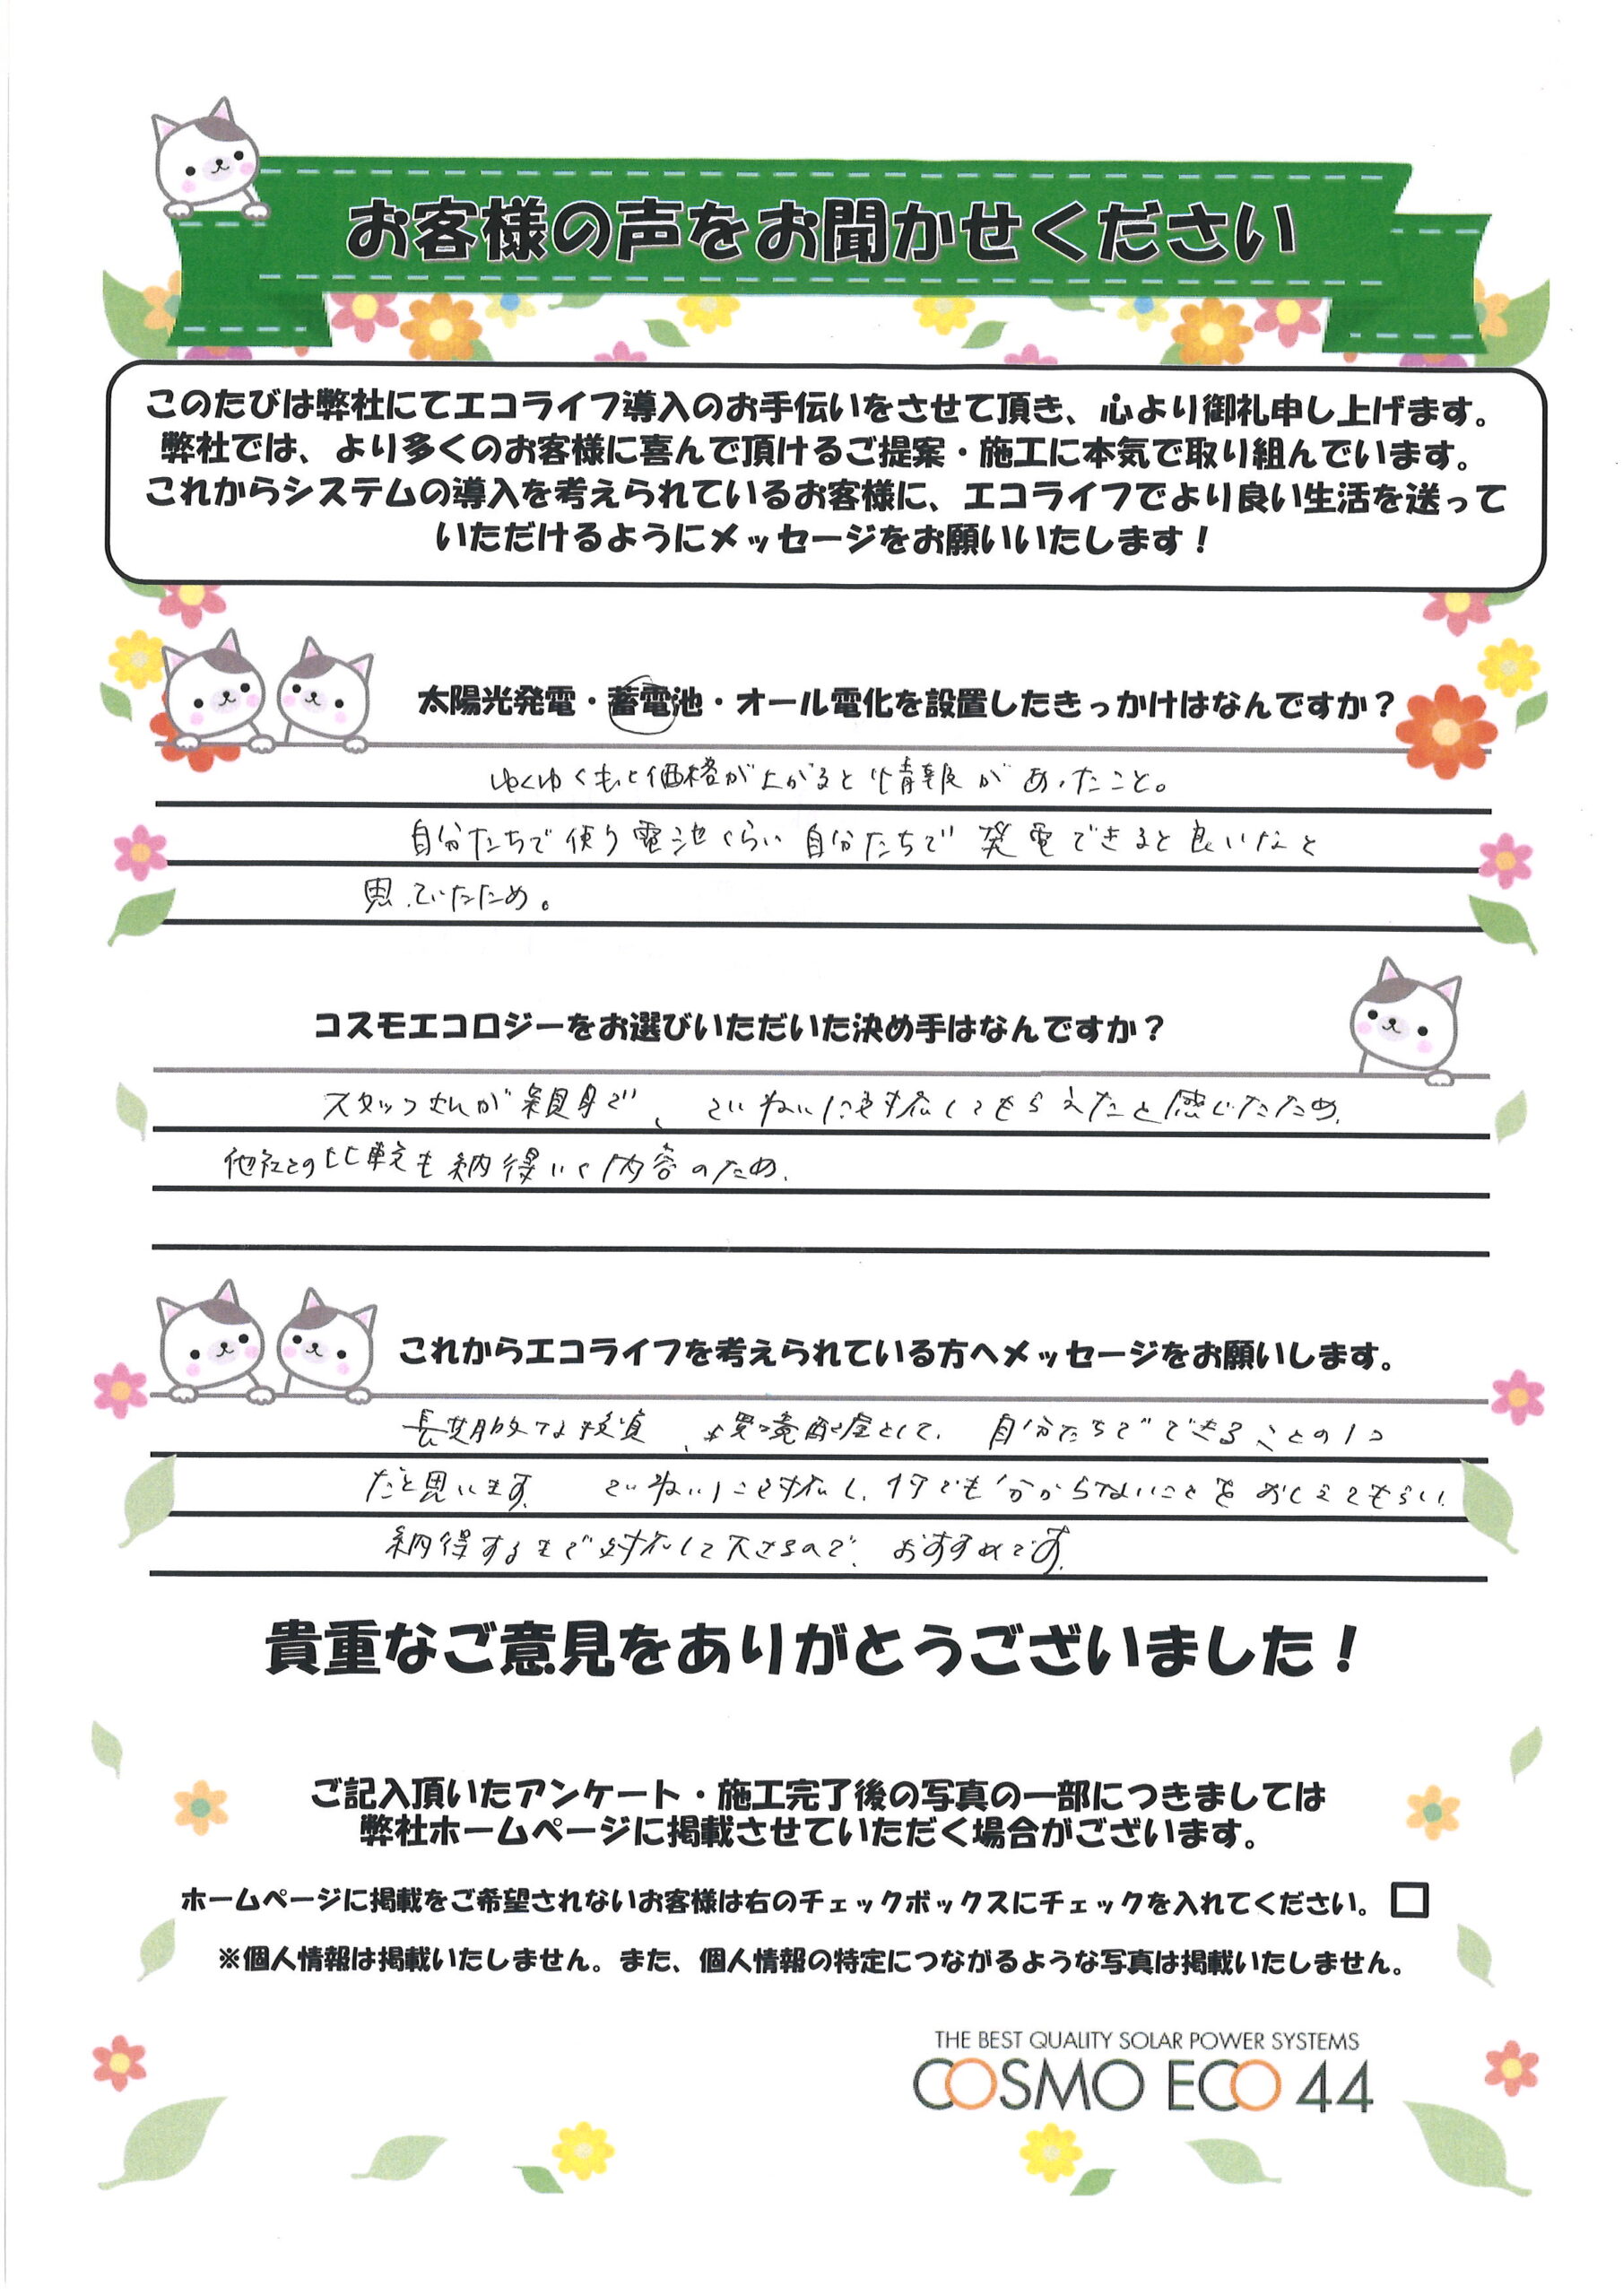 お客様の声をお聞かせください
このたびは弊社にてエコライフ導入のお手伝いをさせて頂き、心より御礼申し上げます。
弊社では、より多くのお客様に喜んで頂けるご提案・施工に本気で取り組んでいます。
これからシステムの導入を考えられているお客様に、エコライフでより良い生活を送って
いただけるようにメッセージをお願いいたします！
太陽光発電・蓄電池・オール電化を設置したきっかけはなんですか？
ゆくゆくもっと価格が上がると情報があったこと。
自分たちで使う電池くらい自分たちで発電できると良いなと
思っていたため。
コスモエコロジーをお選びいただいた決め手はなんですか？
スタッフさんが親身で、ていねいに対応してもらえたと感じたため。
他社との比較も納得いく内容のため。
これからエコライフを考えられている方へメッセージをお願いします。
長期的な投資、環境配慮として、自分たちでできることの1つ
だと思います。ていねいに対応し、何でも分からないことをおしえてもらい、
納得するまで対応して下さるので、おすすめです。
貴重なご意見をありがとうございました！
ご記入頂いたアンケート・施工完了後の写真の一部につきましては
弊社ホームページに掲載させていただく場合がございます。
ホームページに掲載をご希望されないお客様は右のチェックボックスにチェックを入れてください。□
※個人情報は掲載いたしません。また、個人情報の特定につながるような写真は掲載いたしません。
THE BEST QUALITY SOLAR POWER SYSTEMS
COSMO ECO 44